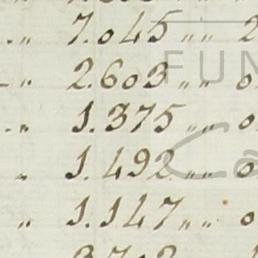 .„ 7.045 „ „ 2
„ 2.603 „ „ 0
.„ 1.375 „ „ 0
„ 1.492 0
„ 1.147 „ „ 0
FUN
Ca